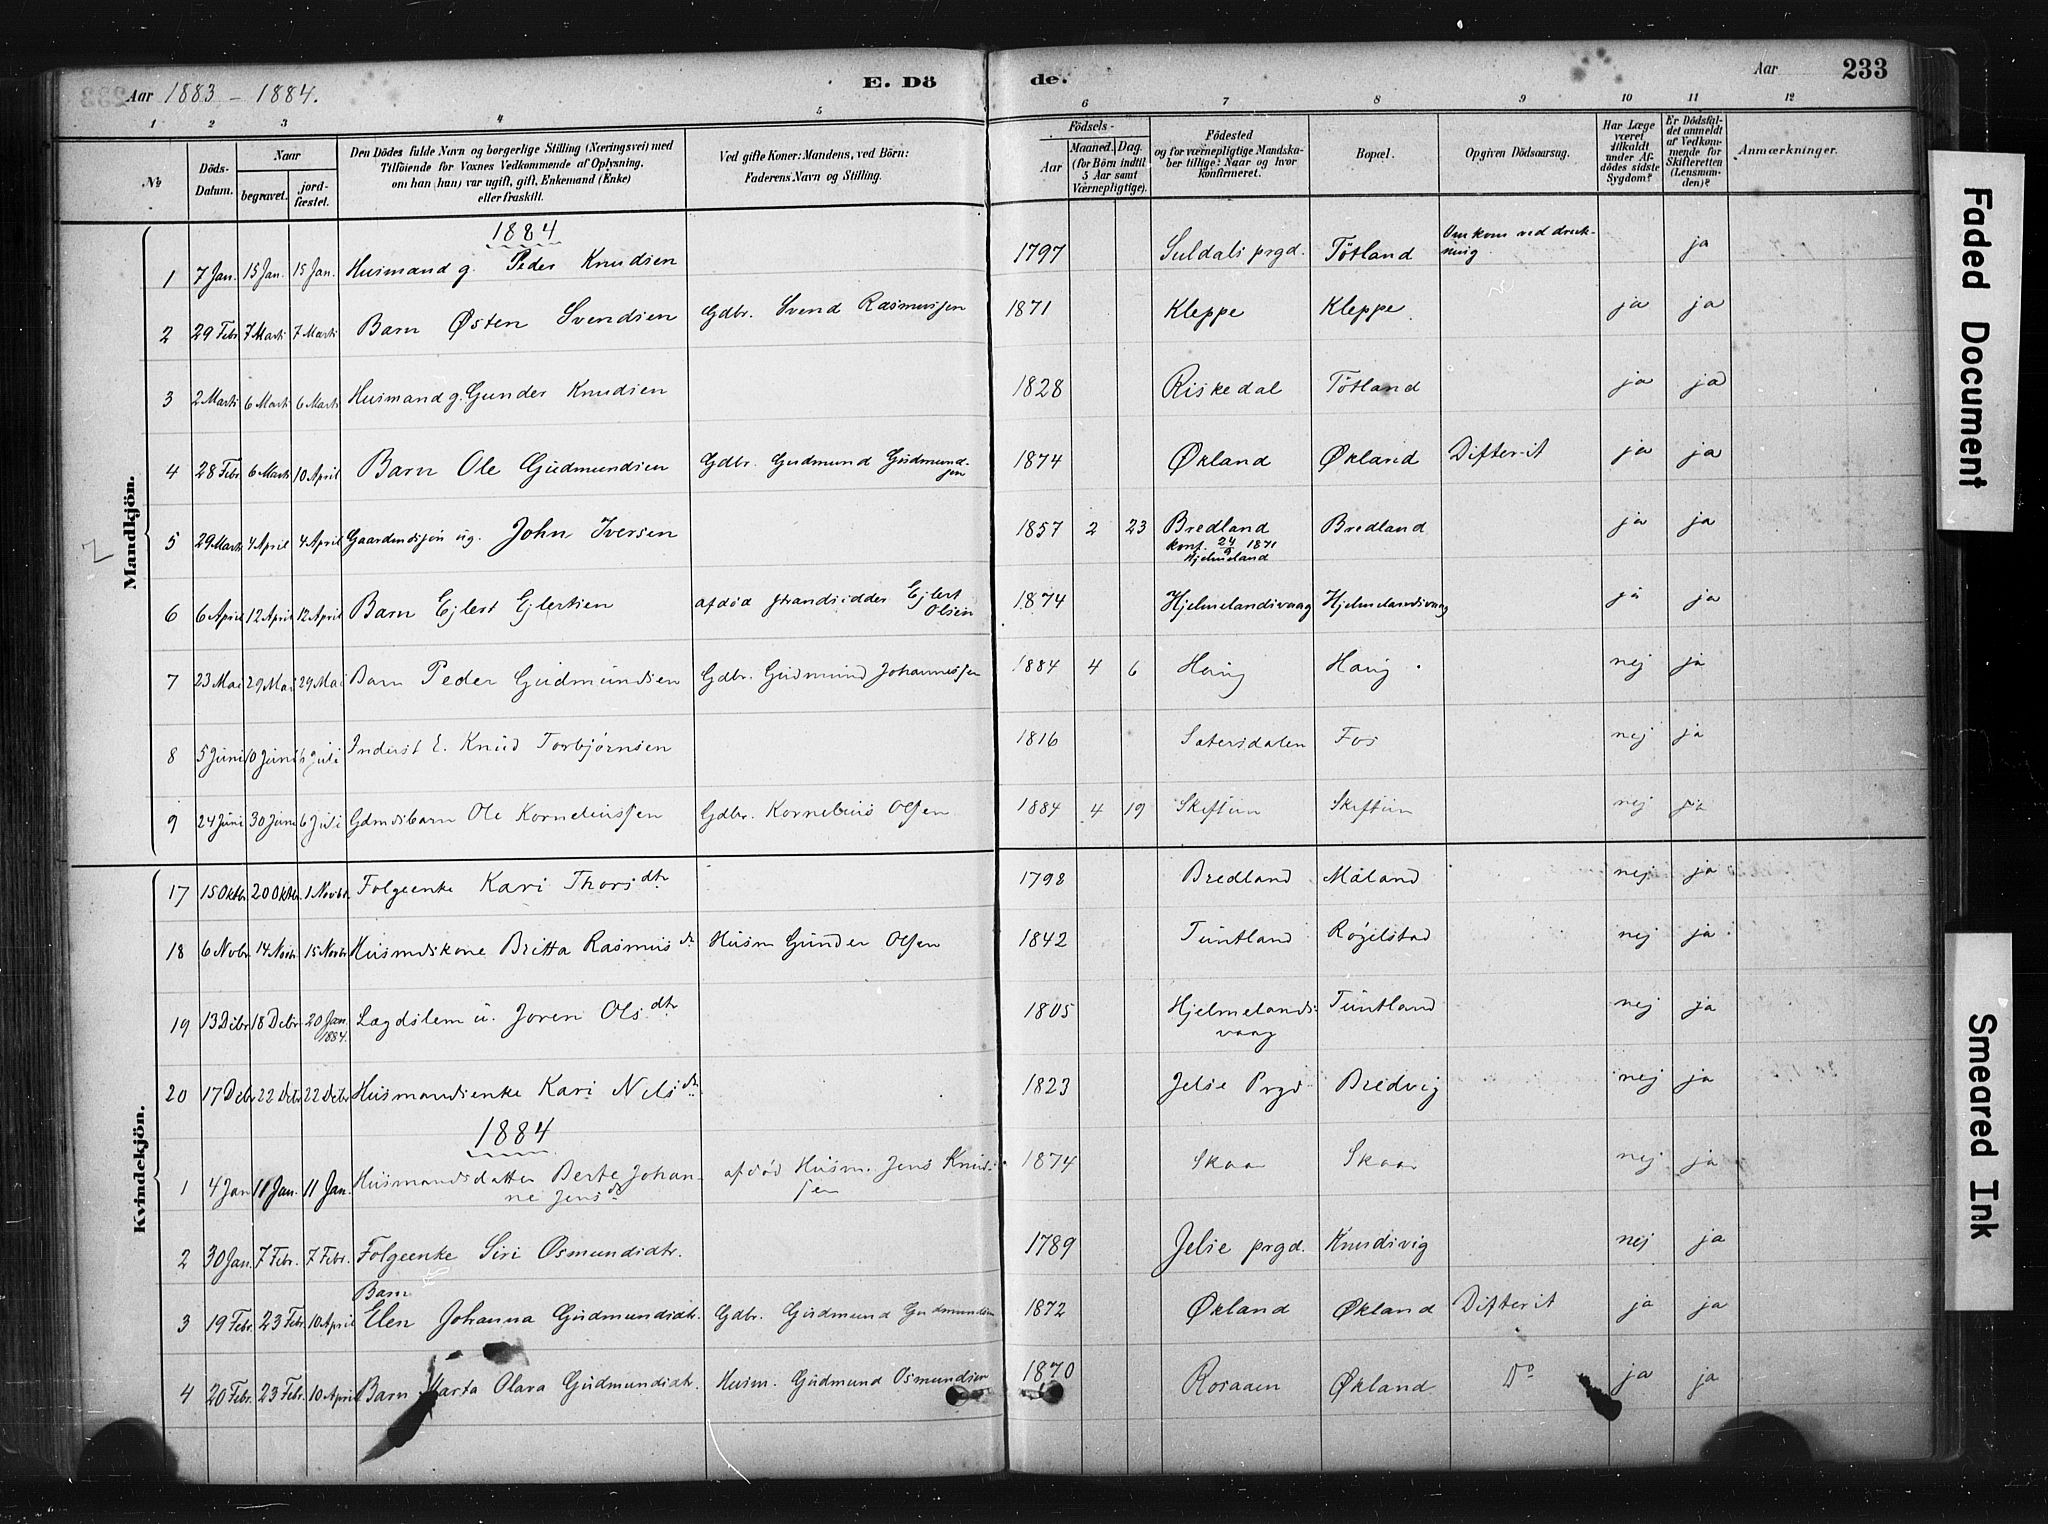 Aar 1883 - 1884.
E. Dö
de.
Aar
233
1 2 3 4 5 6 7 8 9 10 11 12
№
Döds-Datum.
Naar
begravet.
jord-fæstet.
Den Dödes fulde Navn og borgerlige Stilling (Næringsvei) med
Tilföiende for Voxnes Vedkommende af Oplysning,
om han (hun) var ugift, gift, Enkemand (Enke)
eller fraskilt.
Ved gifte Koner: Mandens, ved Börn:
Faderens Navn og Stilling.
Födsels-
Aar
Maaned. Dag.
(for Börn indtil
5 Aar samt
Værnepligtige).
Födested
og for værnepligtige Mandska-
ber tillige: Naar og hvor
konfirmeret.
Bopæl.
Opgiven Dödsaarsag.
Har Læge
været
tilkaldt
under Af-
dödes sidste
Sygdom?
Er Dödsfal-
det anmeldt
af Vedkom-
mende for
Skifteretten
(Lensman-
den)?
Anmærkninger.
Mandkjön.
1884
1 7 Jan. 15 Jan. 15 Jan. Husmand g. Peder Knudsen 1797 Suldals prgd. Tøtland Omkom ved druk-
ning. ja
2 29 Febr 7 Marts 7 Marts Barn Østen Svendsen Gdbr. Svend Rasmussen 1871 Kleppe Kleppe. ja ja
3 2 Marts 6 Marts 6 Marts Husmand g. Gunder Knudsen 1828 Riskedal Tøtland ja ja
4 28 Febr 6 Marts 10 April Barn Ole Gudmundsen Gdbr. Gudmund Gudmund-
sen 1874 Økland Økland Difterit ja ja
5 29 Marts 4 April 4 April Gaardmdsøn ug. John Iversen 1857 2 23 Bredland Bredland ja ja
konf. 24/9 1871
Hjelmeland
6 6 April 12 April 12 April Barn Ejlert Ejlertsen afdød strandsidder Ejlert
Olsen 1874 Hjelmelandsvaag Hjelmelandsvaag ja ja
7 23 Mai 29 Mai 29 Mai Barn Peder Gudmundsen Gdbr. Gudmund Johannessen 1884 4 6 Haug Haug. nej ja
8 5 Juni 10 Juni 6 Juli Inderst E. Knud Torbjørnsen 1816 Satersdalen Fos nej ja
9 24 Juni 30 Juni 6 Juli Gdmdsbarn Ole Korneliussen Gdbr. Kornelius Olsen 1884 4 19 Skiftun Skiftun nej ja
Kvindekjön.
17 15 Oktbr 20 Oktbr. 1 Novbr Folgeenke Kari Thorsdtr 1798 Bredland Måland nej ja
18 6 Novbr 14 Novbr 15 Novbr Husmdskone Britta Rasmusdr Husm Gunder Olsen 1842 Tuntland Røgelstad nej ja
19 13 Debr 18 Debr 20 Jan.
1884. Lægdslem u. Joren Olsdtr 1805 Hjelmelands-
vaag Tuntland nej ja
20 17 Debr 22 Debr 22 Debr Husmandsenke Kari Nelsdr 1823 Jelse Prgd Bredvig nej ja
1884
1 4 Jan 11 Jan. 11 Jan. Husmandsdatter Berte Johan-
ne Jensdr afdød Husm. Jens Knud-
sen 1874 Skaar Skaar nej ja
2 30 Jan. 7 Febr. 7 Febr. Folgeenke Siri Osmundsdtr. 1789 Jelse prgd. Knudsvig nej ja
Barn
3 19 Febr. 23 Febr. 10 April Elen Johanna Gudmundsdtr. Gdbr. Gudmund Gudmundsen 1872 Økland Økland Difterit ja ja
4 20 Febr. 23 Febr. 10 April Barn Marta Olava Gudmundsdtr. Husm. Gudmund Osmundsen 1870 Rosaaen Økland Do ja ja
Faded Document
Smeared Ink